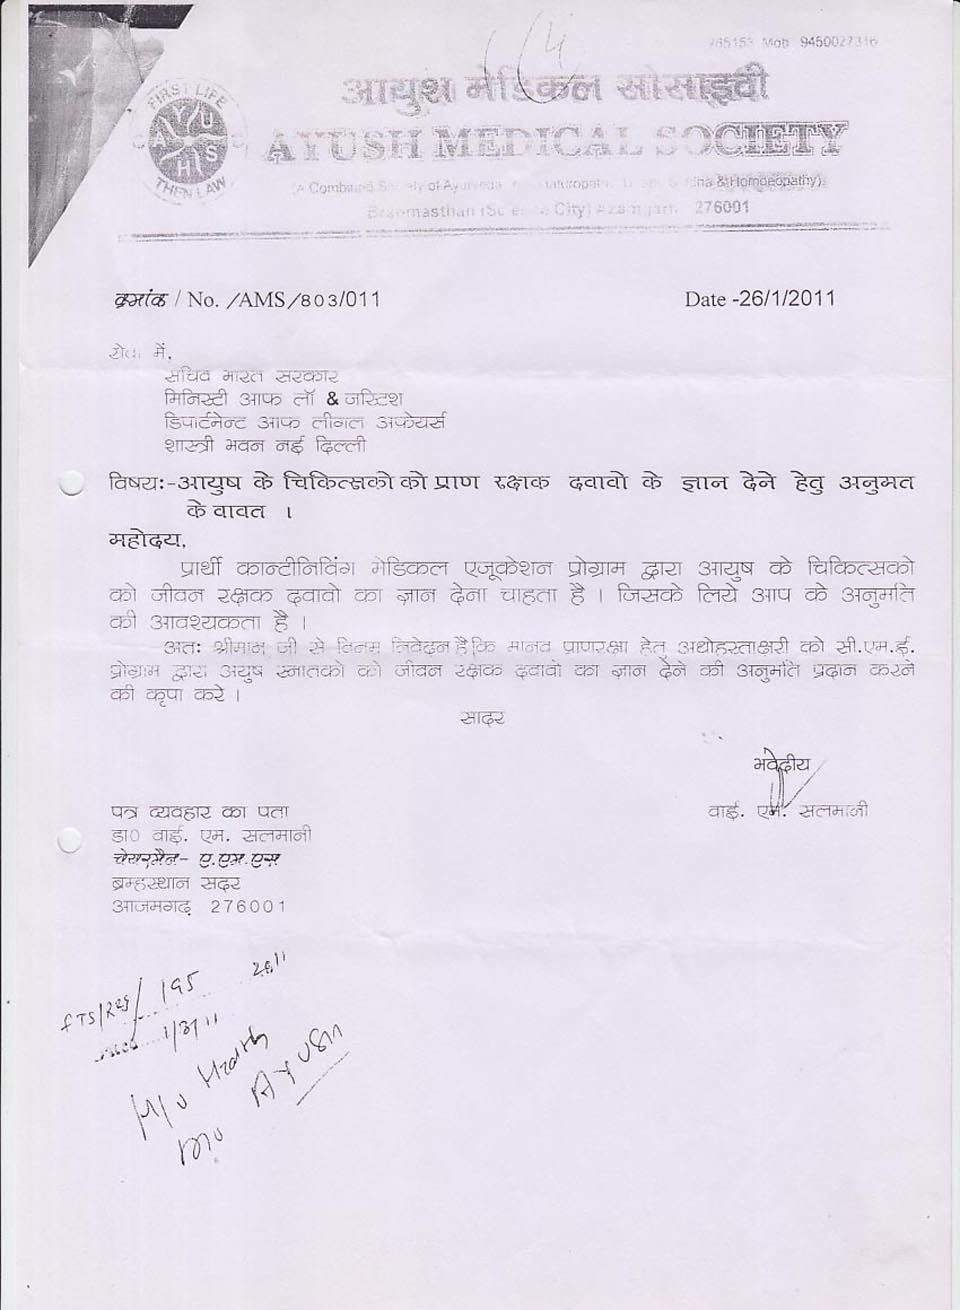 265153 Mob 9450027316
आयुश मेडिकल सोसाइटी
FIRST LIFE
AYUSH
THEN LAW
AYUSH MEDICAL SOCIETY
(A Combined Society of Ayurveda Naturopathy & Homoeopathy)
Brahmasthan (Science City) Azamgarh 276001
क्रमांक / No. /AMS/803/011 Date -26/1/2011
सेवा में,
सचिव भारत सरकार
मिनिस्टी आफ लॉ & जस्टिश
डिपार्टमेन्ट आफ लीगल अफेयर्स
शास्त्री भवन नई दिल्ली
विषयः-आयुष के चिकित्सको को प्राण रक्षक दवावो के ज्ञान देने हेतु अनुमत
के वावत ।
महोदय,
प्रार्थी कान्टीनिविंग मेडिकल एजूकेशन प्रोग्राम द्वारा आयुष के चिकित्सको
को जीवन रक्षक दवावो का ज्ञान देना चाहता है । जिसके लिये आप के अनुमति
की आवश्यकता है ।
अतः श्रीमान जी से विनम्र निवेदन है कि मानव प्राणरक्षा हेतु अधोहस्ताक्षरी को सी.एम.ई.
प्रोग्राम द्वारा अयुष स्नातको को जीवन रक्षक दवावो का ज्ञान देने की अनुमति प्रदान करने
की कृपा करे ।
सादर
भवेदीय
वाई. एम. सलमानी
पत्र व्यवहार का पता
डा0 वाई. एम. सलमानी
चेयरमैन- ए.एम.एस
ब्रम्हस्थान सदर
आजमगढ़ 276001
FTS/R29/195 2011
1/3/11
M/o Health
D/o AYUSH